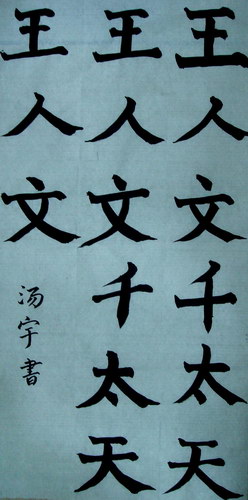 王人文千太天
王人文千太天
王人文
汤宇書